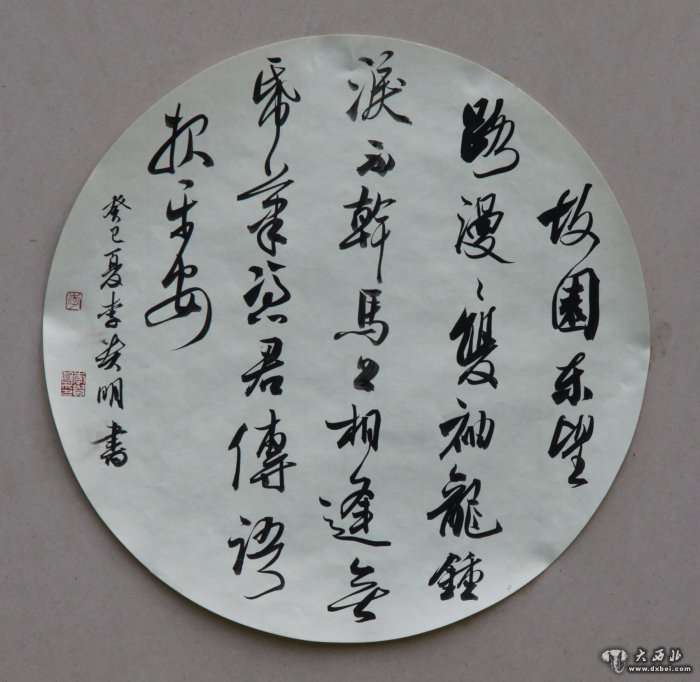 故園東望
路漫々雙袖龍鍾
淚不幹馬上相逢無
帋筆憑君傳語
報平安
癸巳夏李英明書
大西北
www.dxbei.com